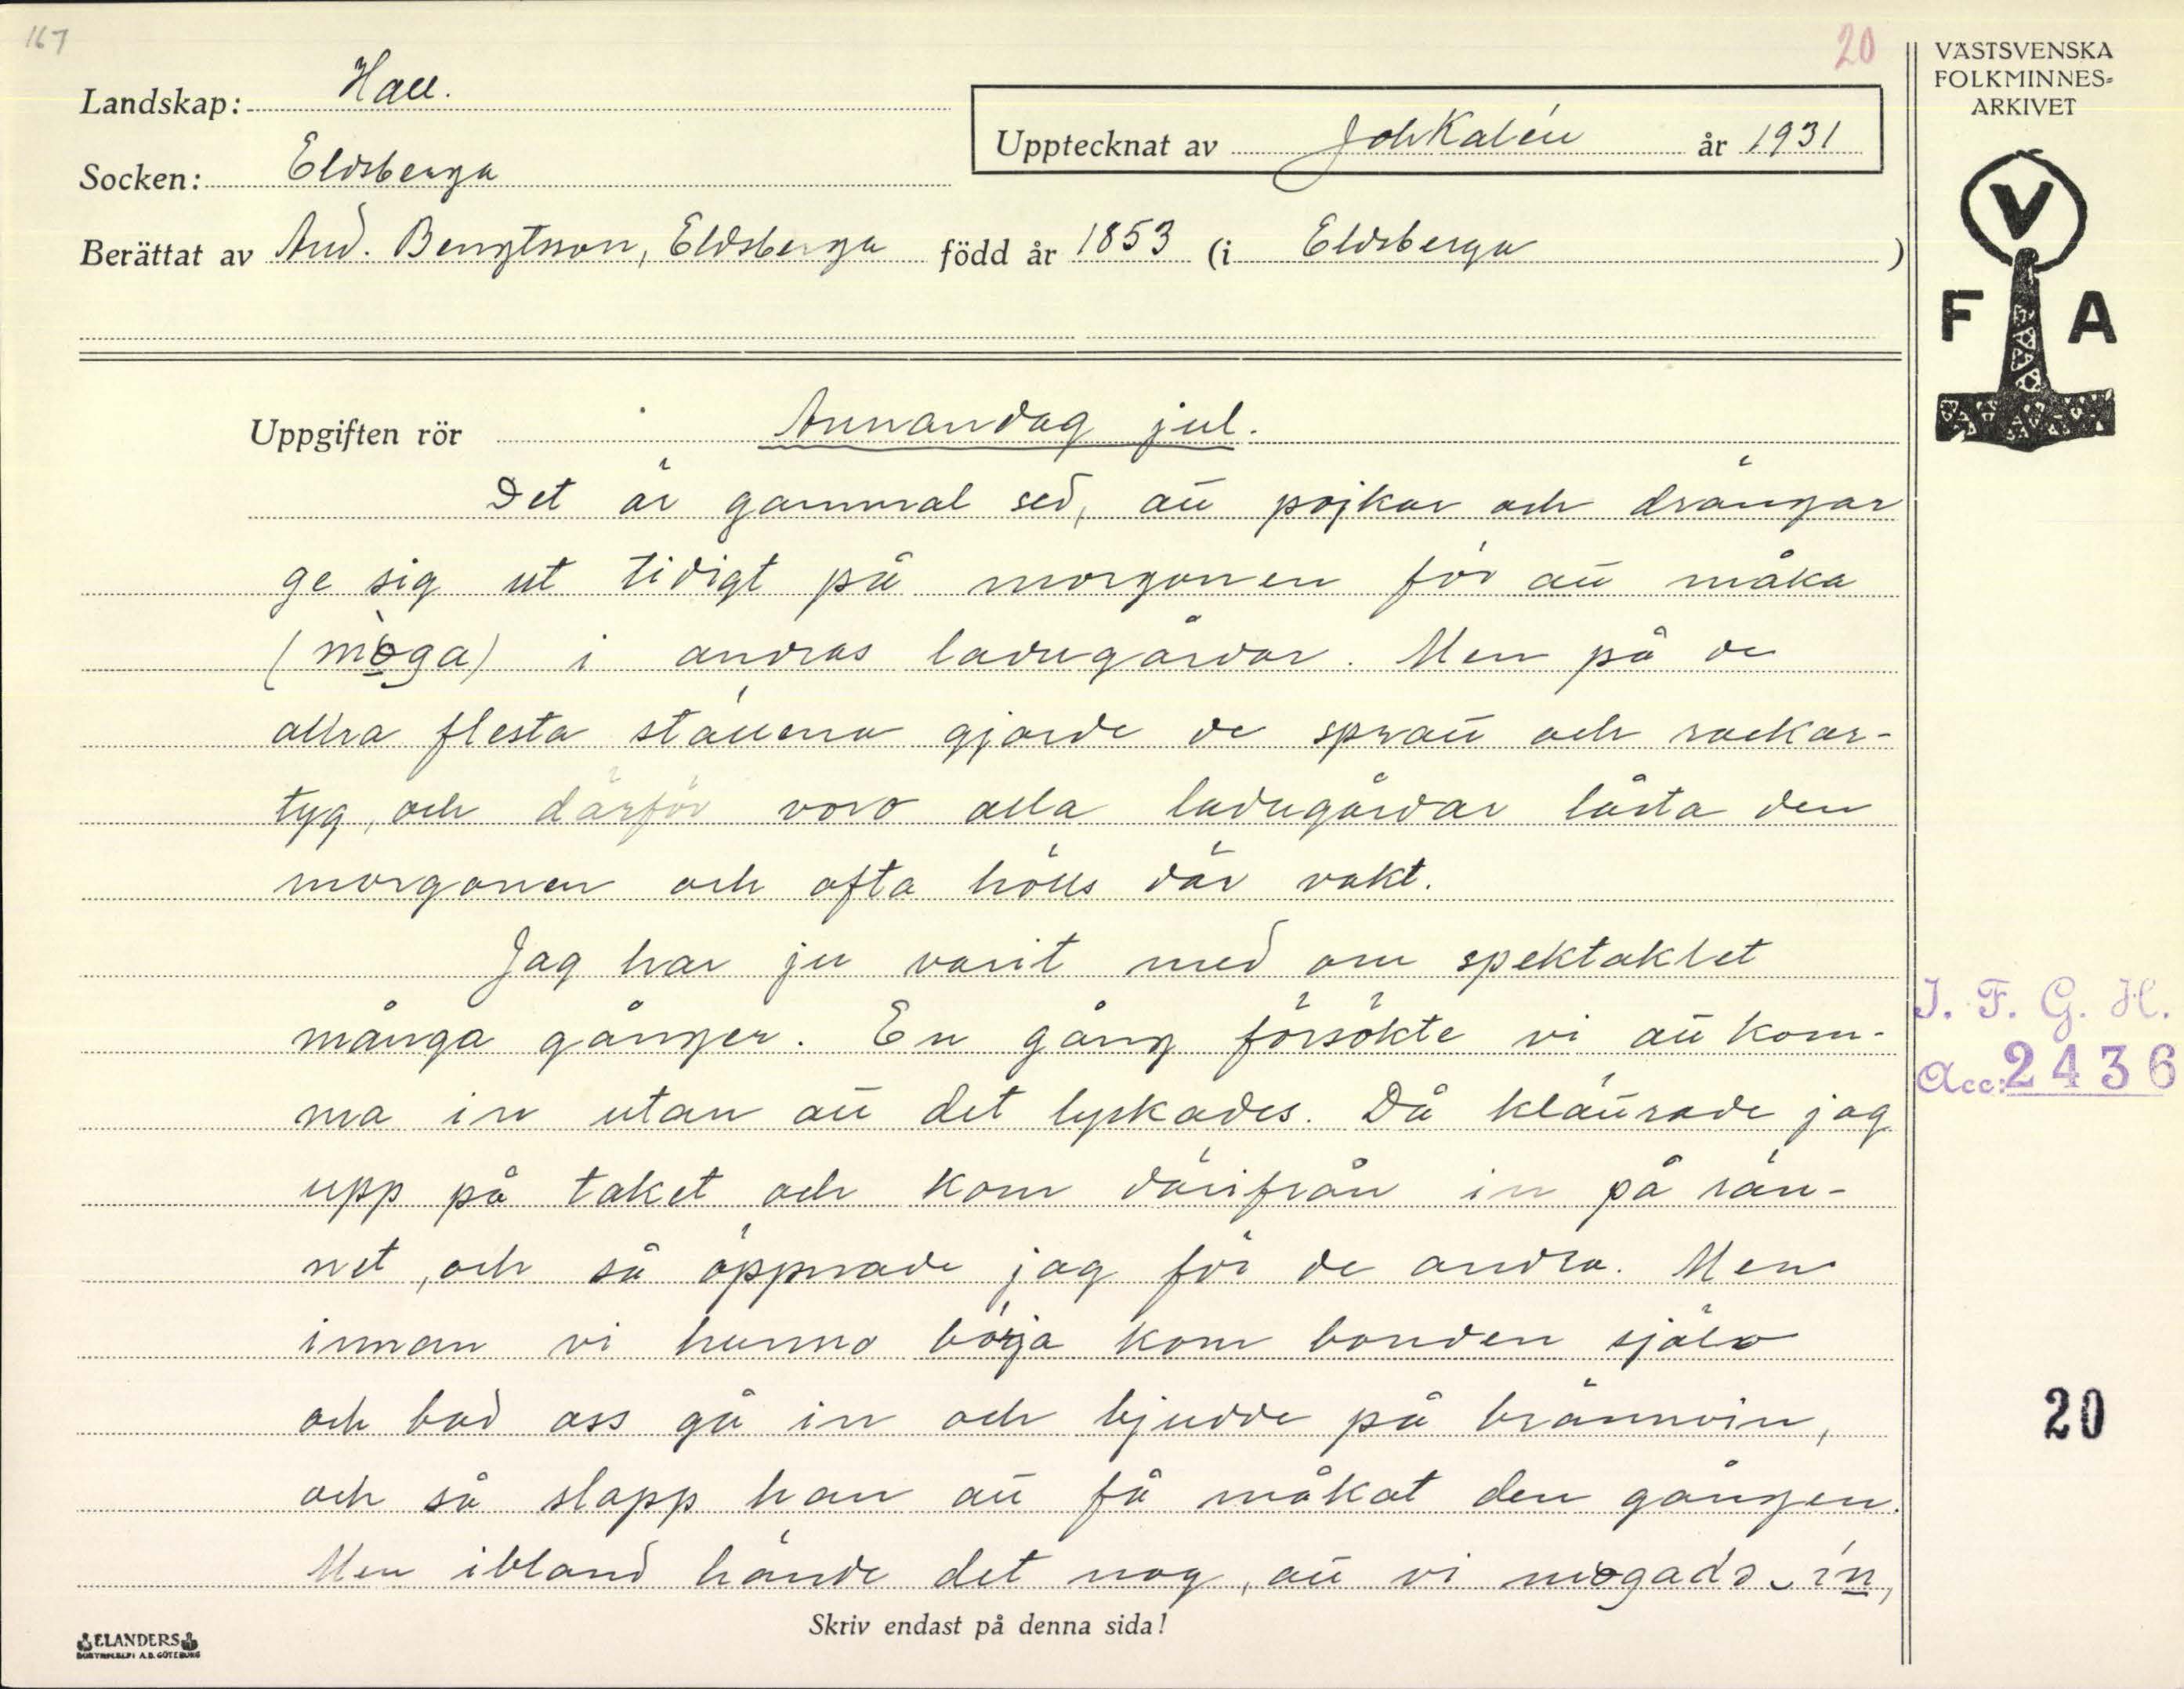 167
20
VÄSTSVENSKA
FOLKMINNES=
ARKIVET
Landskap: Hall.
Upptecknat av Joh Kalén år 1931
Socken: Eldsberga
Berättat av And. Bengtsson, Eldsberga född år 1853 (i Eldsberga )
V
F A
Uppgiften rör Annandag jul.
Det är gammal sed, att pojkar och drängar
ge sig ut tidigt på morgonen för att måka
(mòga) i andras ladugårdar. Men på de
allra flesta ställena gjorde de spratt och rackar-
tyg, och därför voro alla ladugårdar låsta den
morgonen och ofta hölls där vakt.
Jag har ju varit med om spektaklet
många gånger. En gång försökte vi att kom-
ma in utan att det lyckades. Då klättrade jag
upp på taket och kom därifrån in på rän-
net, och så öppnade jag för de andra. Men
innan vi hunno börja kom bonden själv
och bad oss gå in och bjudde på brännvin,
och så slapp han att få måkat den gången.
Men ibland hände det nog, att vi mogads in,
I. F. G. H.
Acc: 2436
20
Skriv endast på denna sida!
ELANDERS
BOKTRYCKERI A.B. GÖTEBORG